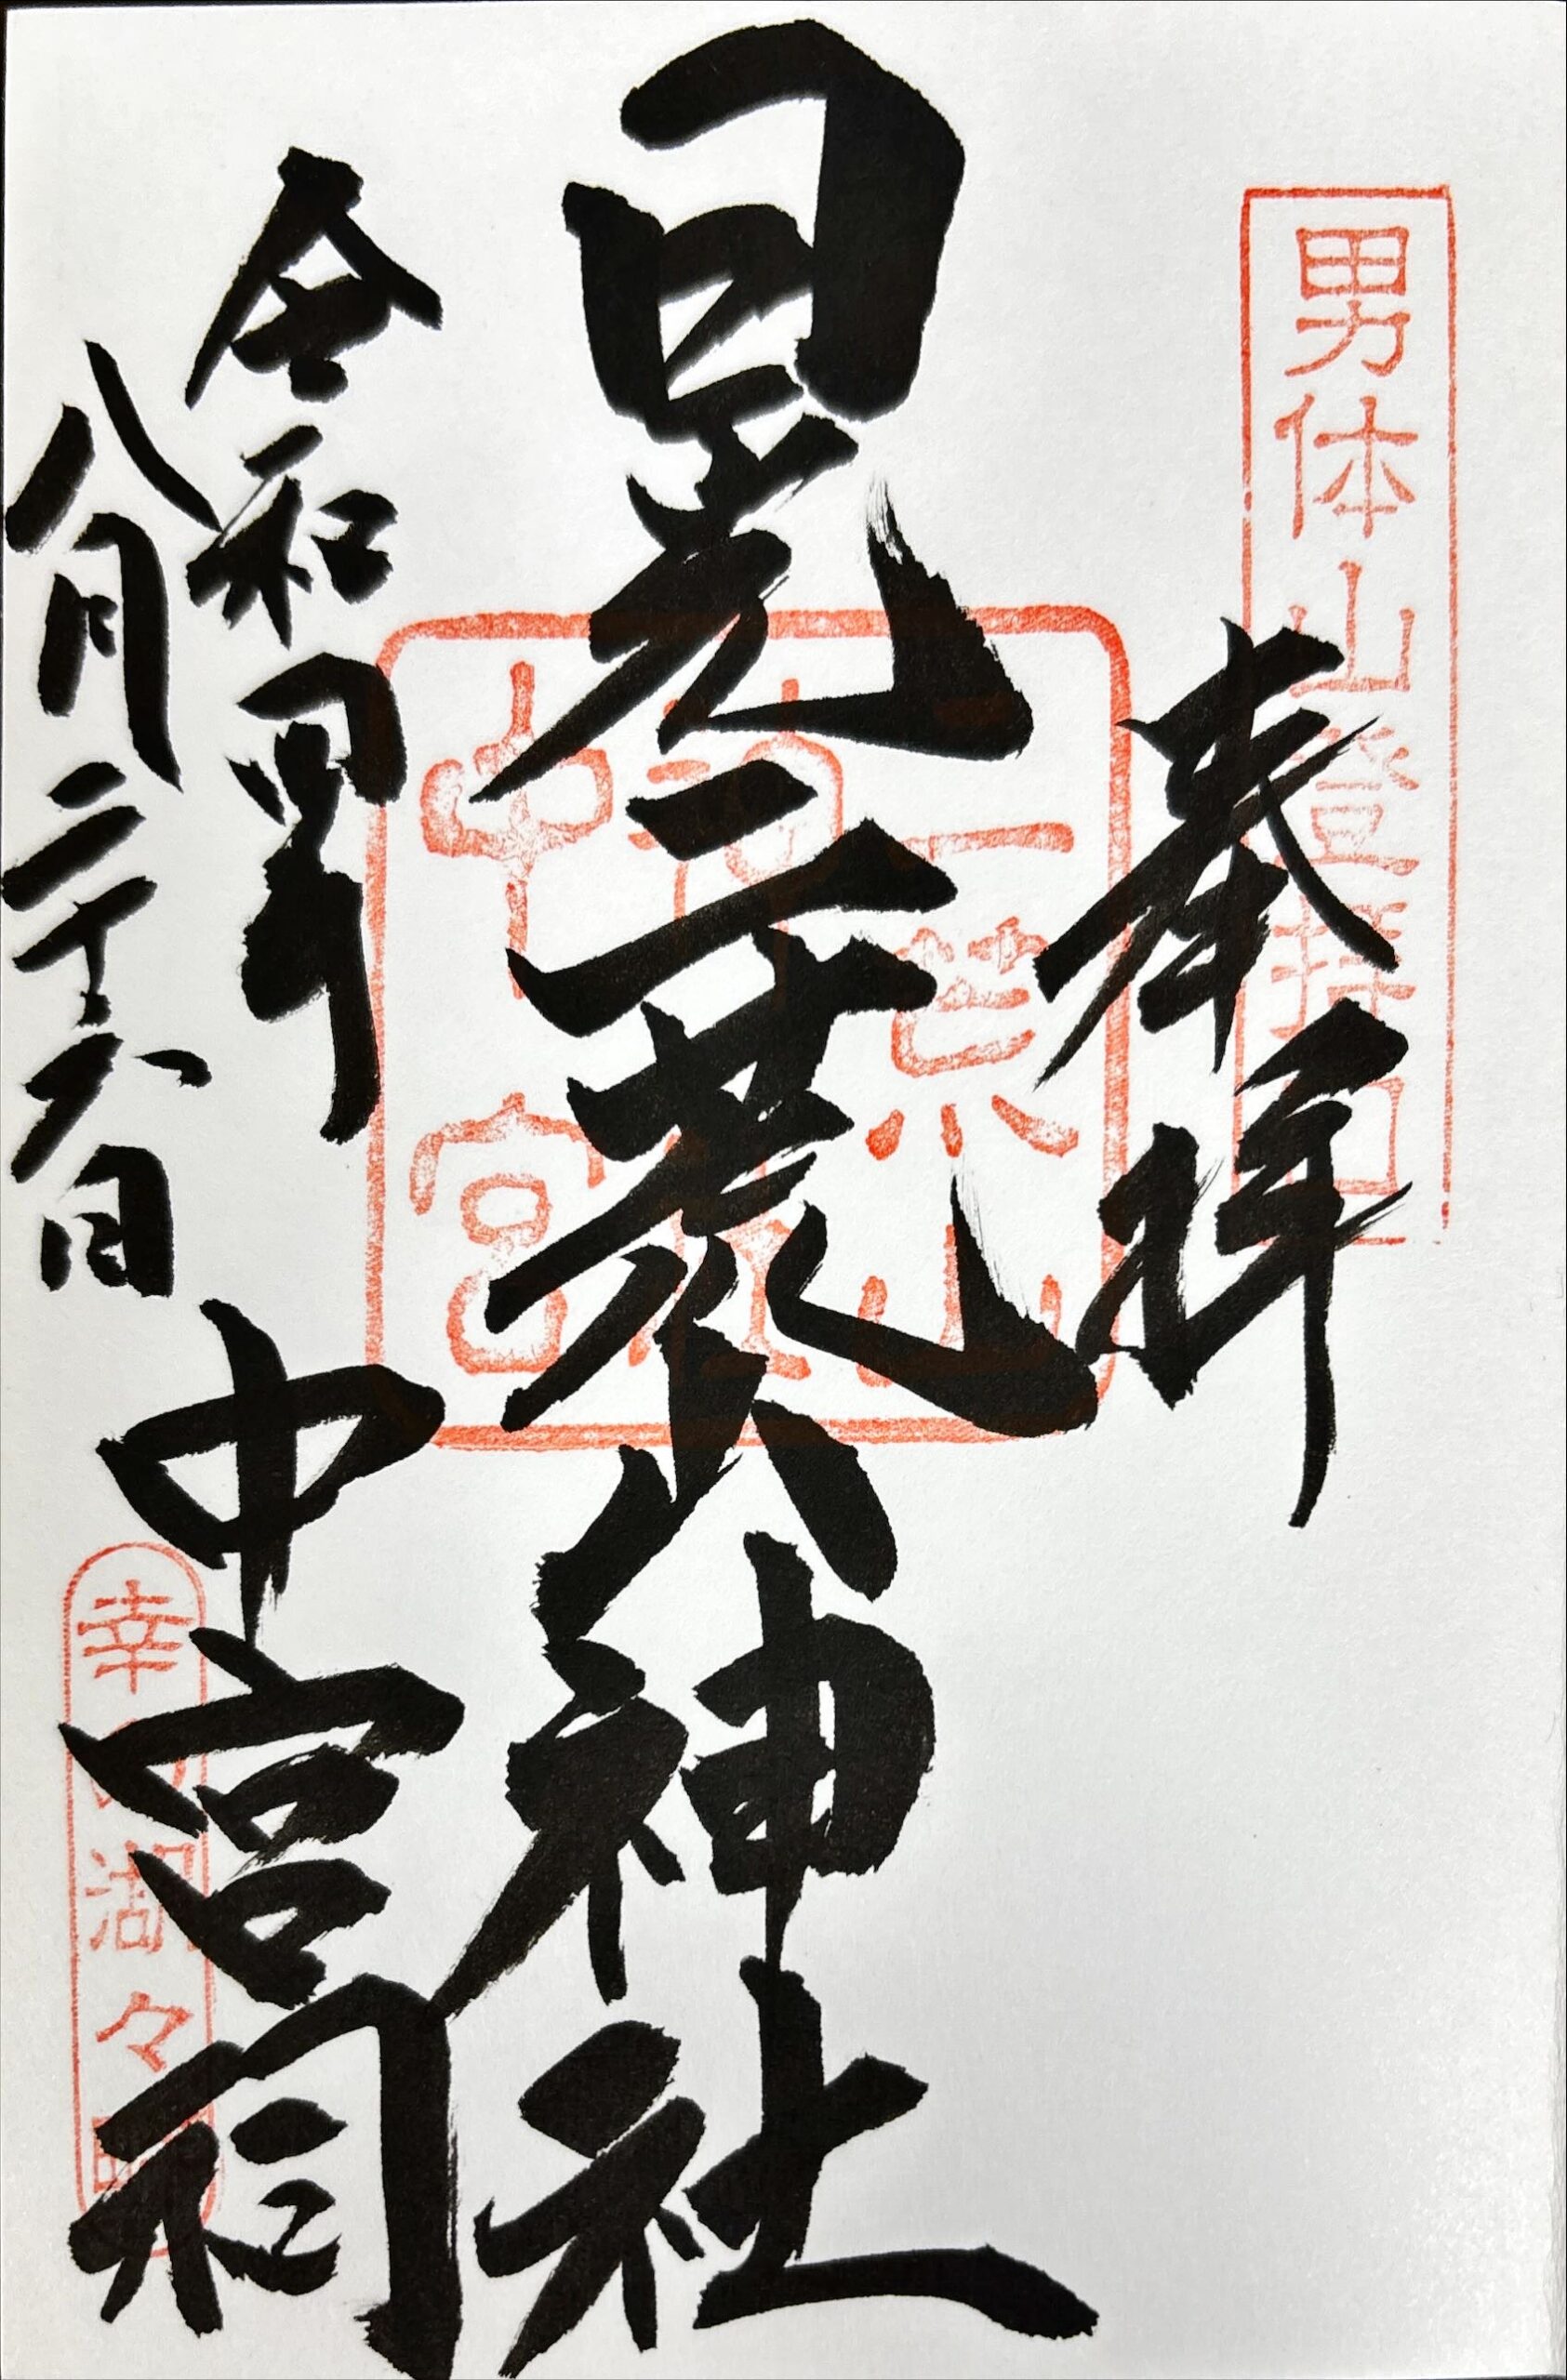 男体山登拝口
奉拝
日光二荒山神社
二荒山
神社
中宮
令和四年
八月二十六日
中宮祠
幸の湖々畔